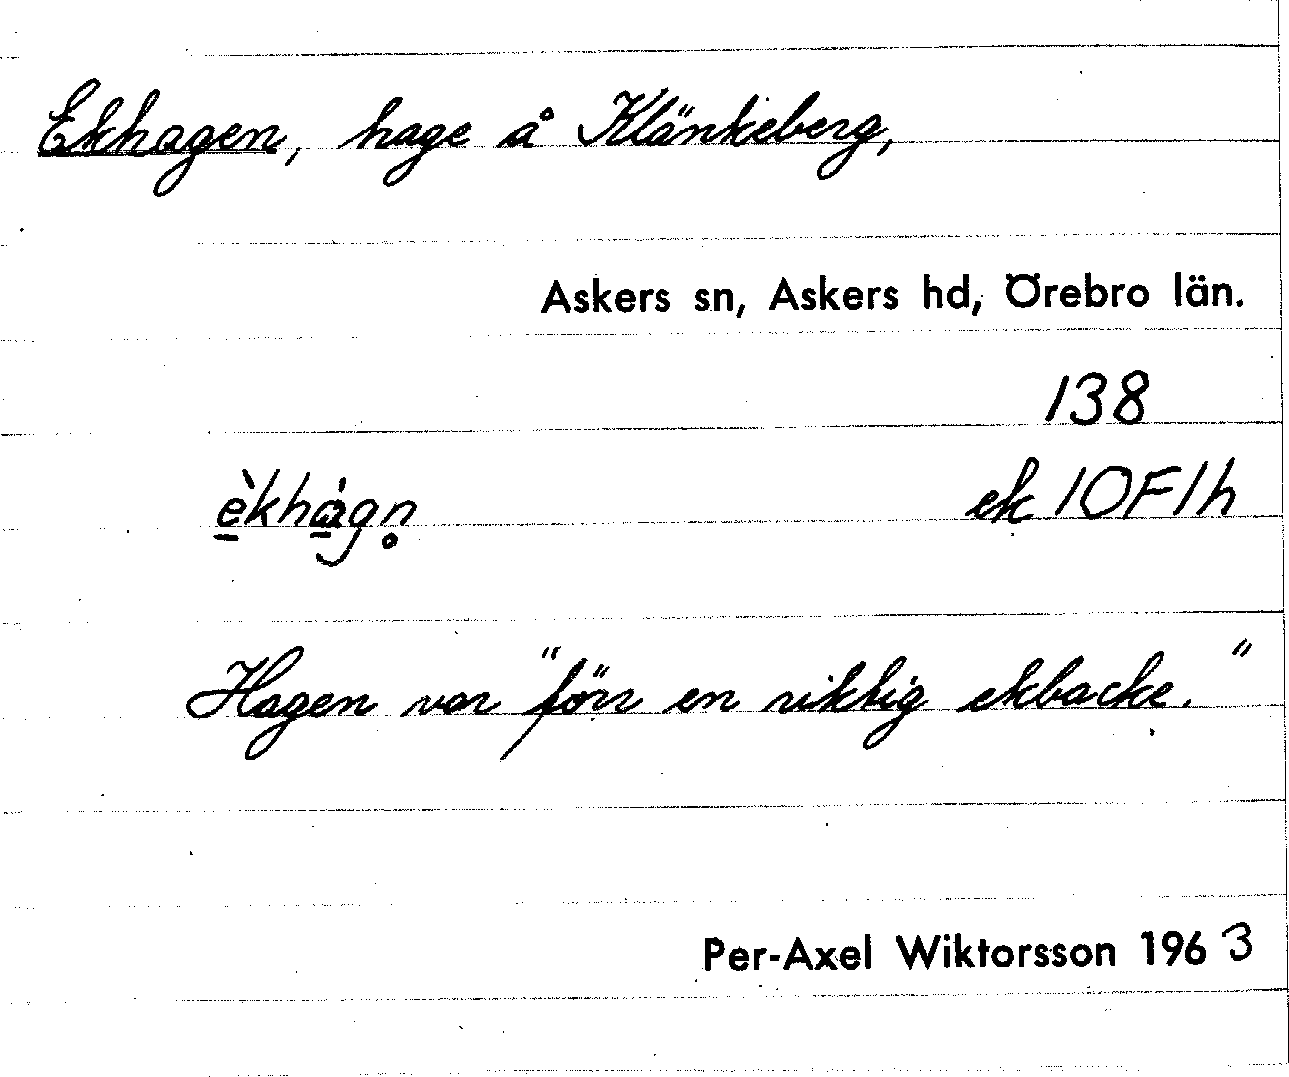 Ekhagen, hage å Klänkeberg,
Askers sn, Askers hd, Örebro län.
138
èkhágn̥ ek 10F1h
Hagen var "förr en riktig ekbacke."
Per-Axel Wiktorsson 1963